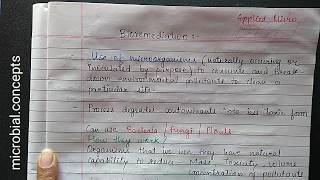 Applied Micro
Bioremediation :-
- Use of microorganisms (naturally occuring or
inoculated by purpose) to consume and break
down environmental pollutants to clean a
particular site.
- Process degrades contaminants into less toxic form
Can use Bacteria / Fungi / Mould
How they work?
Organisms that we use they have natural
capability to reduce Mass Toxicity volume
concentration of pollutants
microbial concepts